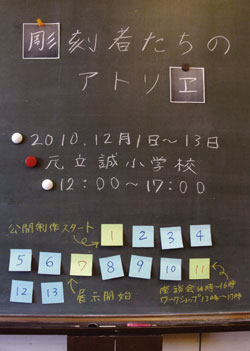 彫刻者たちの
アトリエ
2010.12月1日〜13日
元立誠小学校
12:00〜17:00
公開制作スタート
1 2 3 4
5 6 7 8 9 10 11
展示開始
座談会14時〜16時
ワークショップ13時〜17時
12 13